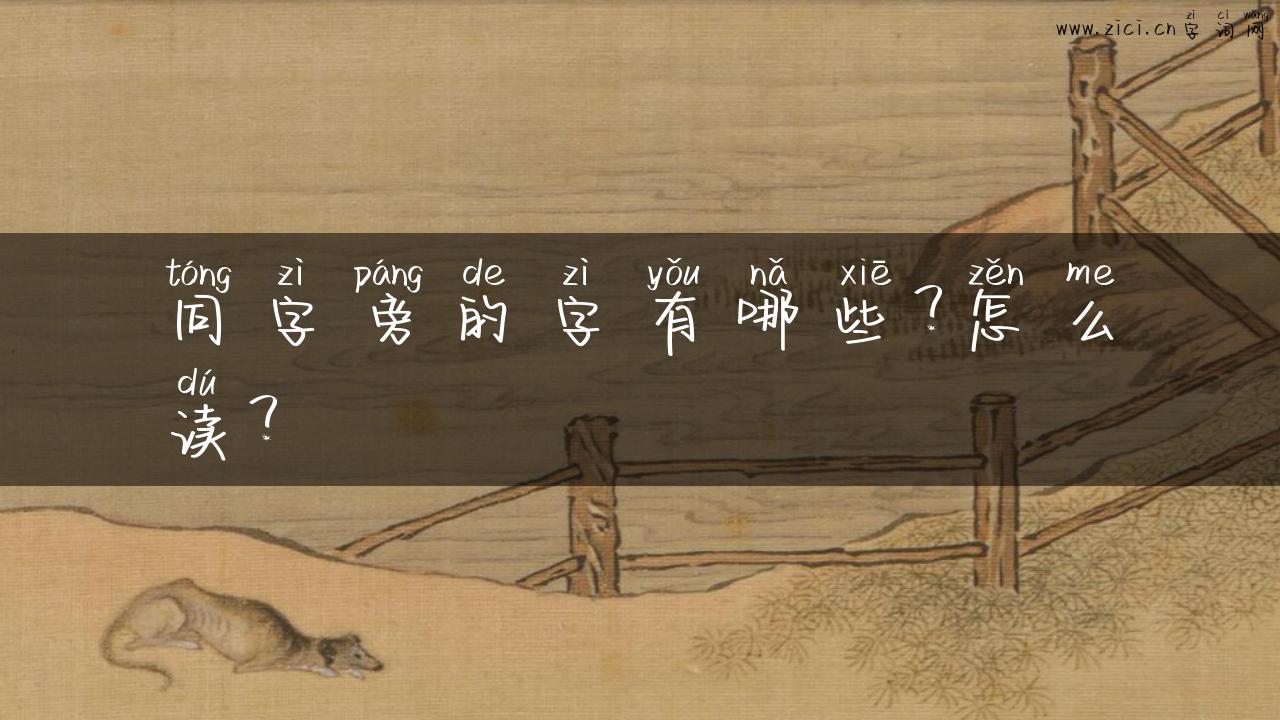 zì cí wǎng
www.zici.cn字词网
tóng zì páng de zì yǒu nǎ xiē zěn me
同字旁的字有哪些?怎么
dú
读?